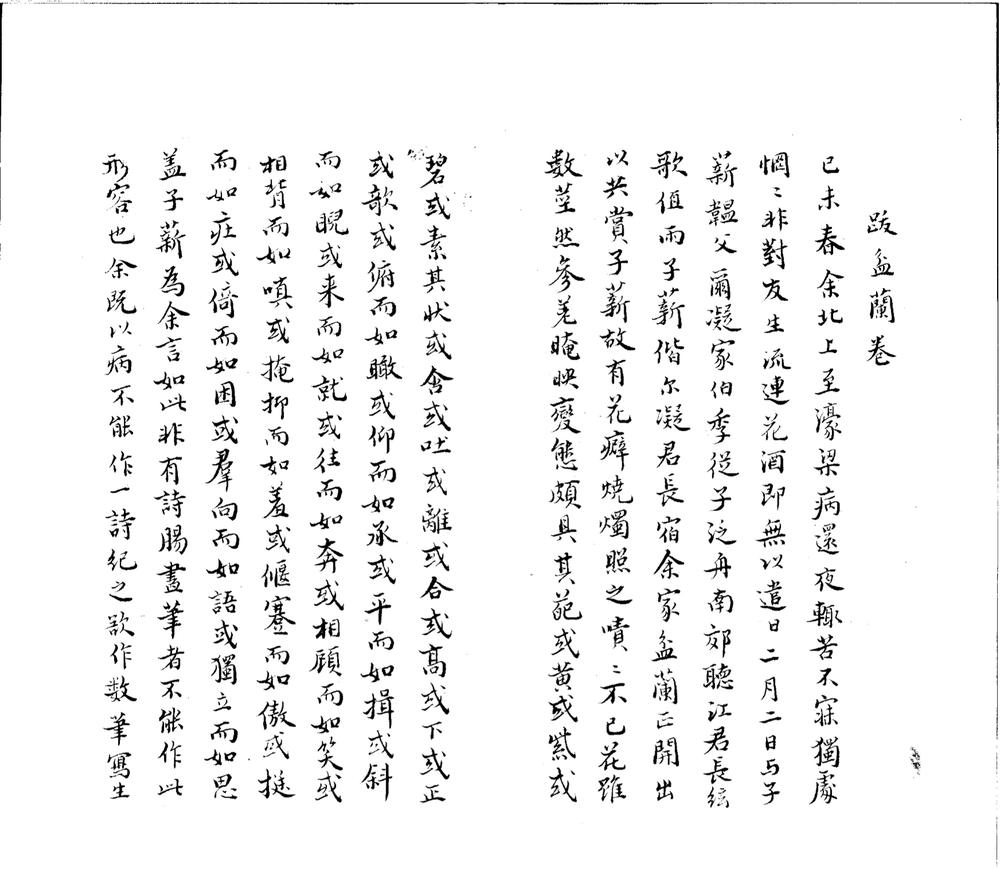 跋盆蘭卷
己未春余北上至濠梁病還夜輒苦不寐獨處
惘〻非對友生流連花酒即無以遣日二月二日与子
薪韞父爾凝家伯季從子泛舟南郊聽江君長絃
歌值雨子薪偕尔凝君長宿余家盆蘭正開出
以共賞子薪故有花癖燒燭照之嘖〻不已花雖
數莖然參差晻映變態頗具其葩或黃或紫或
碧或素其狀或含或吐或離或合或高或下或正
或欹或俯而如瞰或仰而如承或平而如揖或斜
而如睨或来而如就或往而如奔或相顧而如笑或
相背而如嗔或掩抑而如羞或偃蹇而如傲或挺
而如莊或倚而如困或羣向而如語或獨立而如思
盖子薪為余言如此非有詩腸畫筆者不能作此
形容也余既以病不能作一詩紀之欲作数筆寫生